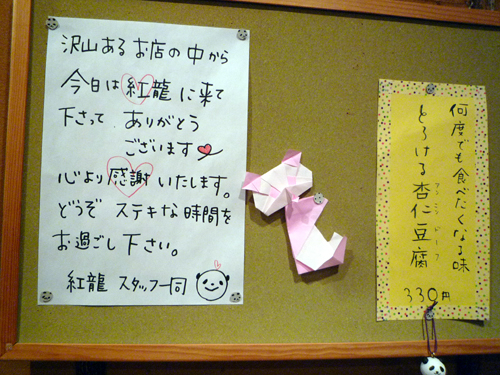 沢山あるお店の中から
今日は紅龍に来て
下さって ありがとう
ございます
心より感謝いたします。
どうぞ ステキな時間を
お過ごし下さい。
紅龍 スタッフ一同
何度でも食べたくなる味
とろける杏仁豆腐
330円